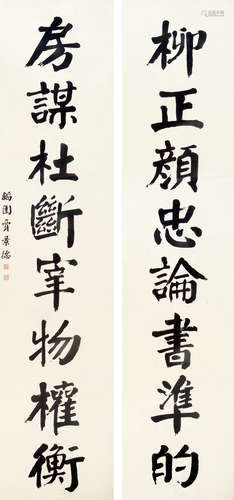 柳正顏忠論書準的
房謀杜斷宰物權衡
韜園賈景德